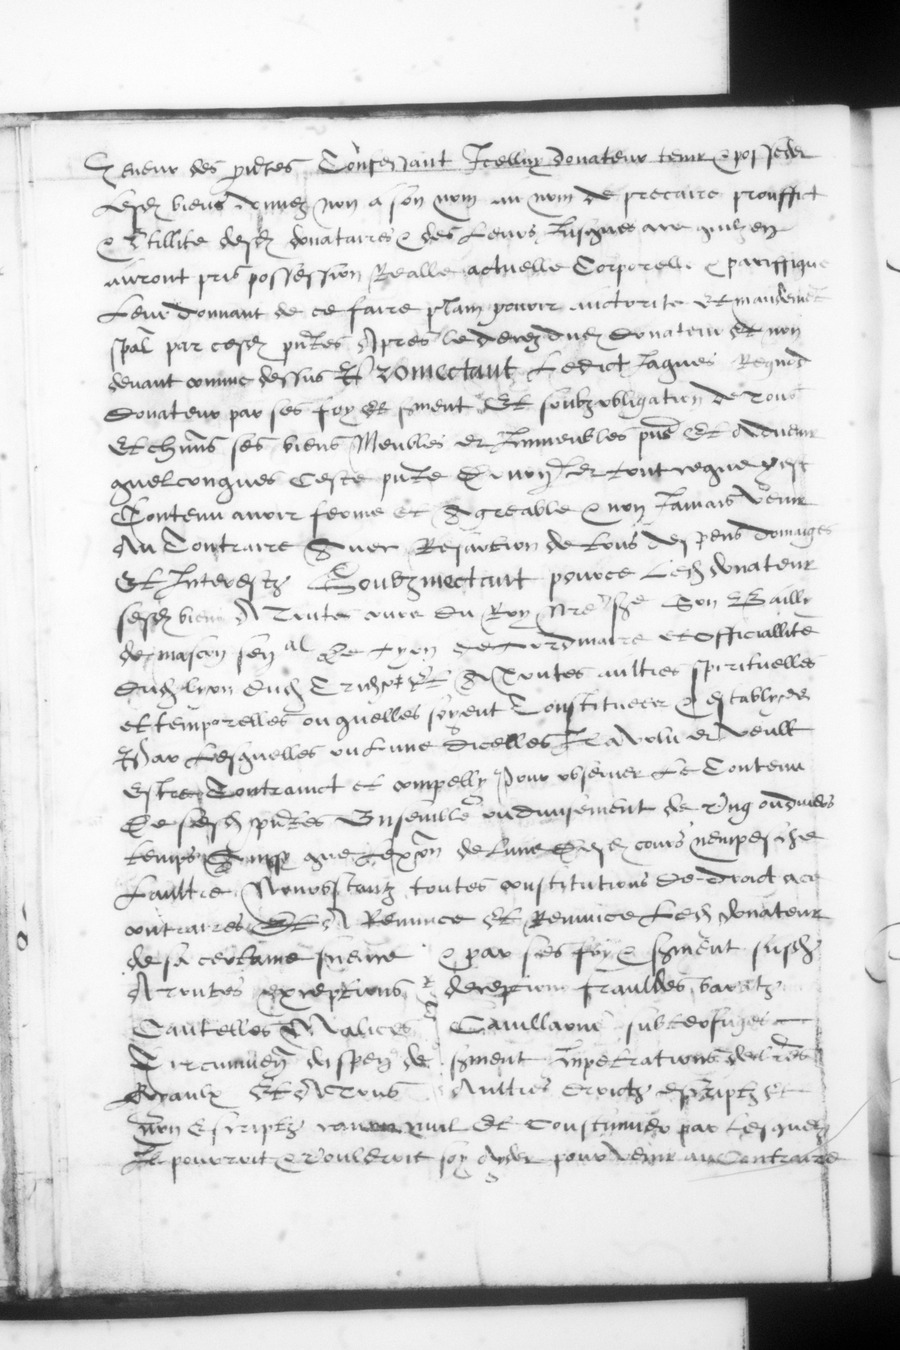 teneur des pntes Confessant Icelluy donateur tenir & posseder
lesd biens donnez non a son nom au nom de precaire prouffit
& Utillite desd donataires & des leurs Jusques ace quilz en
auront pris possession Realle actuelle Corporelle & paciffique
Leur donnant de ce faire plain povoir auctorite Et mandement
spal par cesd pntes Apres le decez dud Donateur Et non
devant comme dessus Promectant Ledict Jaques
donateur par ses foy Et serment Et soubz obligation de tous
Et chuns ses biens Meubles et Immeubles pns Et Advenir
quelconques Ceste pnte et tout ce que y est
Contenu avoir ferme et Agreable & non Jamais Venir
Au Contraire Avec de tous des pens domaiges
Et Interestz Soubzmectant pource Led donateur
sesd biens A Toute cours du Roy nre sire Son Bailly
de mascon sen al de Lyon Lordinaire et officiallite
dud lyon dud Et A Toutes aultres spirituelles
et temporelles ou quelles soyent Constituees & establyes
Par Lesquelles ou Lune dicelles Il a volu et veult
Estre Contrainct et compelly pour observer Le Contenu
De sesd pntes Ensemble ou divisement de Ung ou divers
temps que lexon de lune desd cours nempesche
Laultre Nonobstantz toutes constitutions de droict ace
contraires Et A Renunce Et Renunce Led donateur
de sa certaine science & par ses foy & serment susd
A toutes exceptions deception frauldes baratz
Cautelles Malices Cavillations subterfuges
Circumven dispen de serment Inpetrations de lres
Royaulx Et A Tous Aultres droictz escriptz Et
non Escriptz canon civil Et Coustumier par lesquelz
Il pourroit & vouldroit soy Ayder pour Venir au Contraire